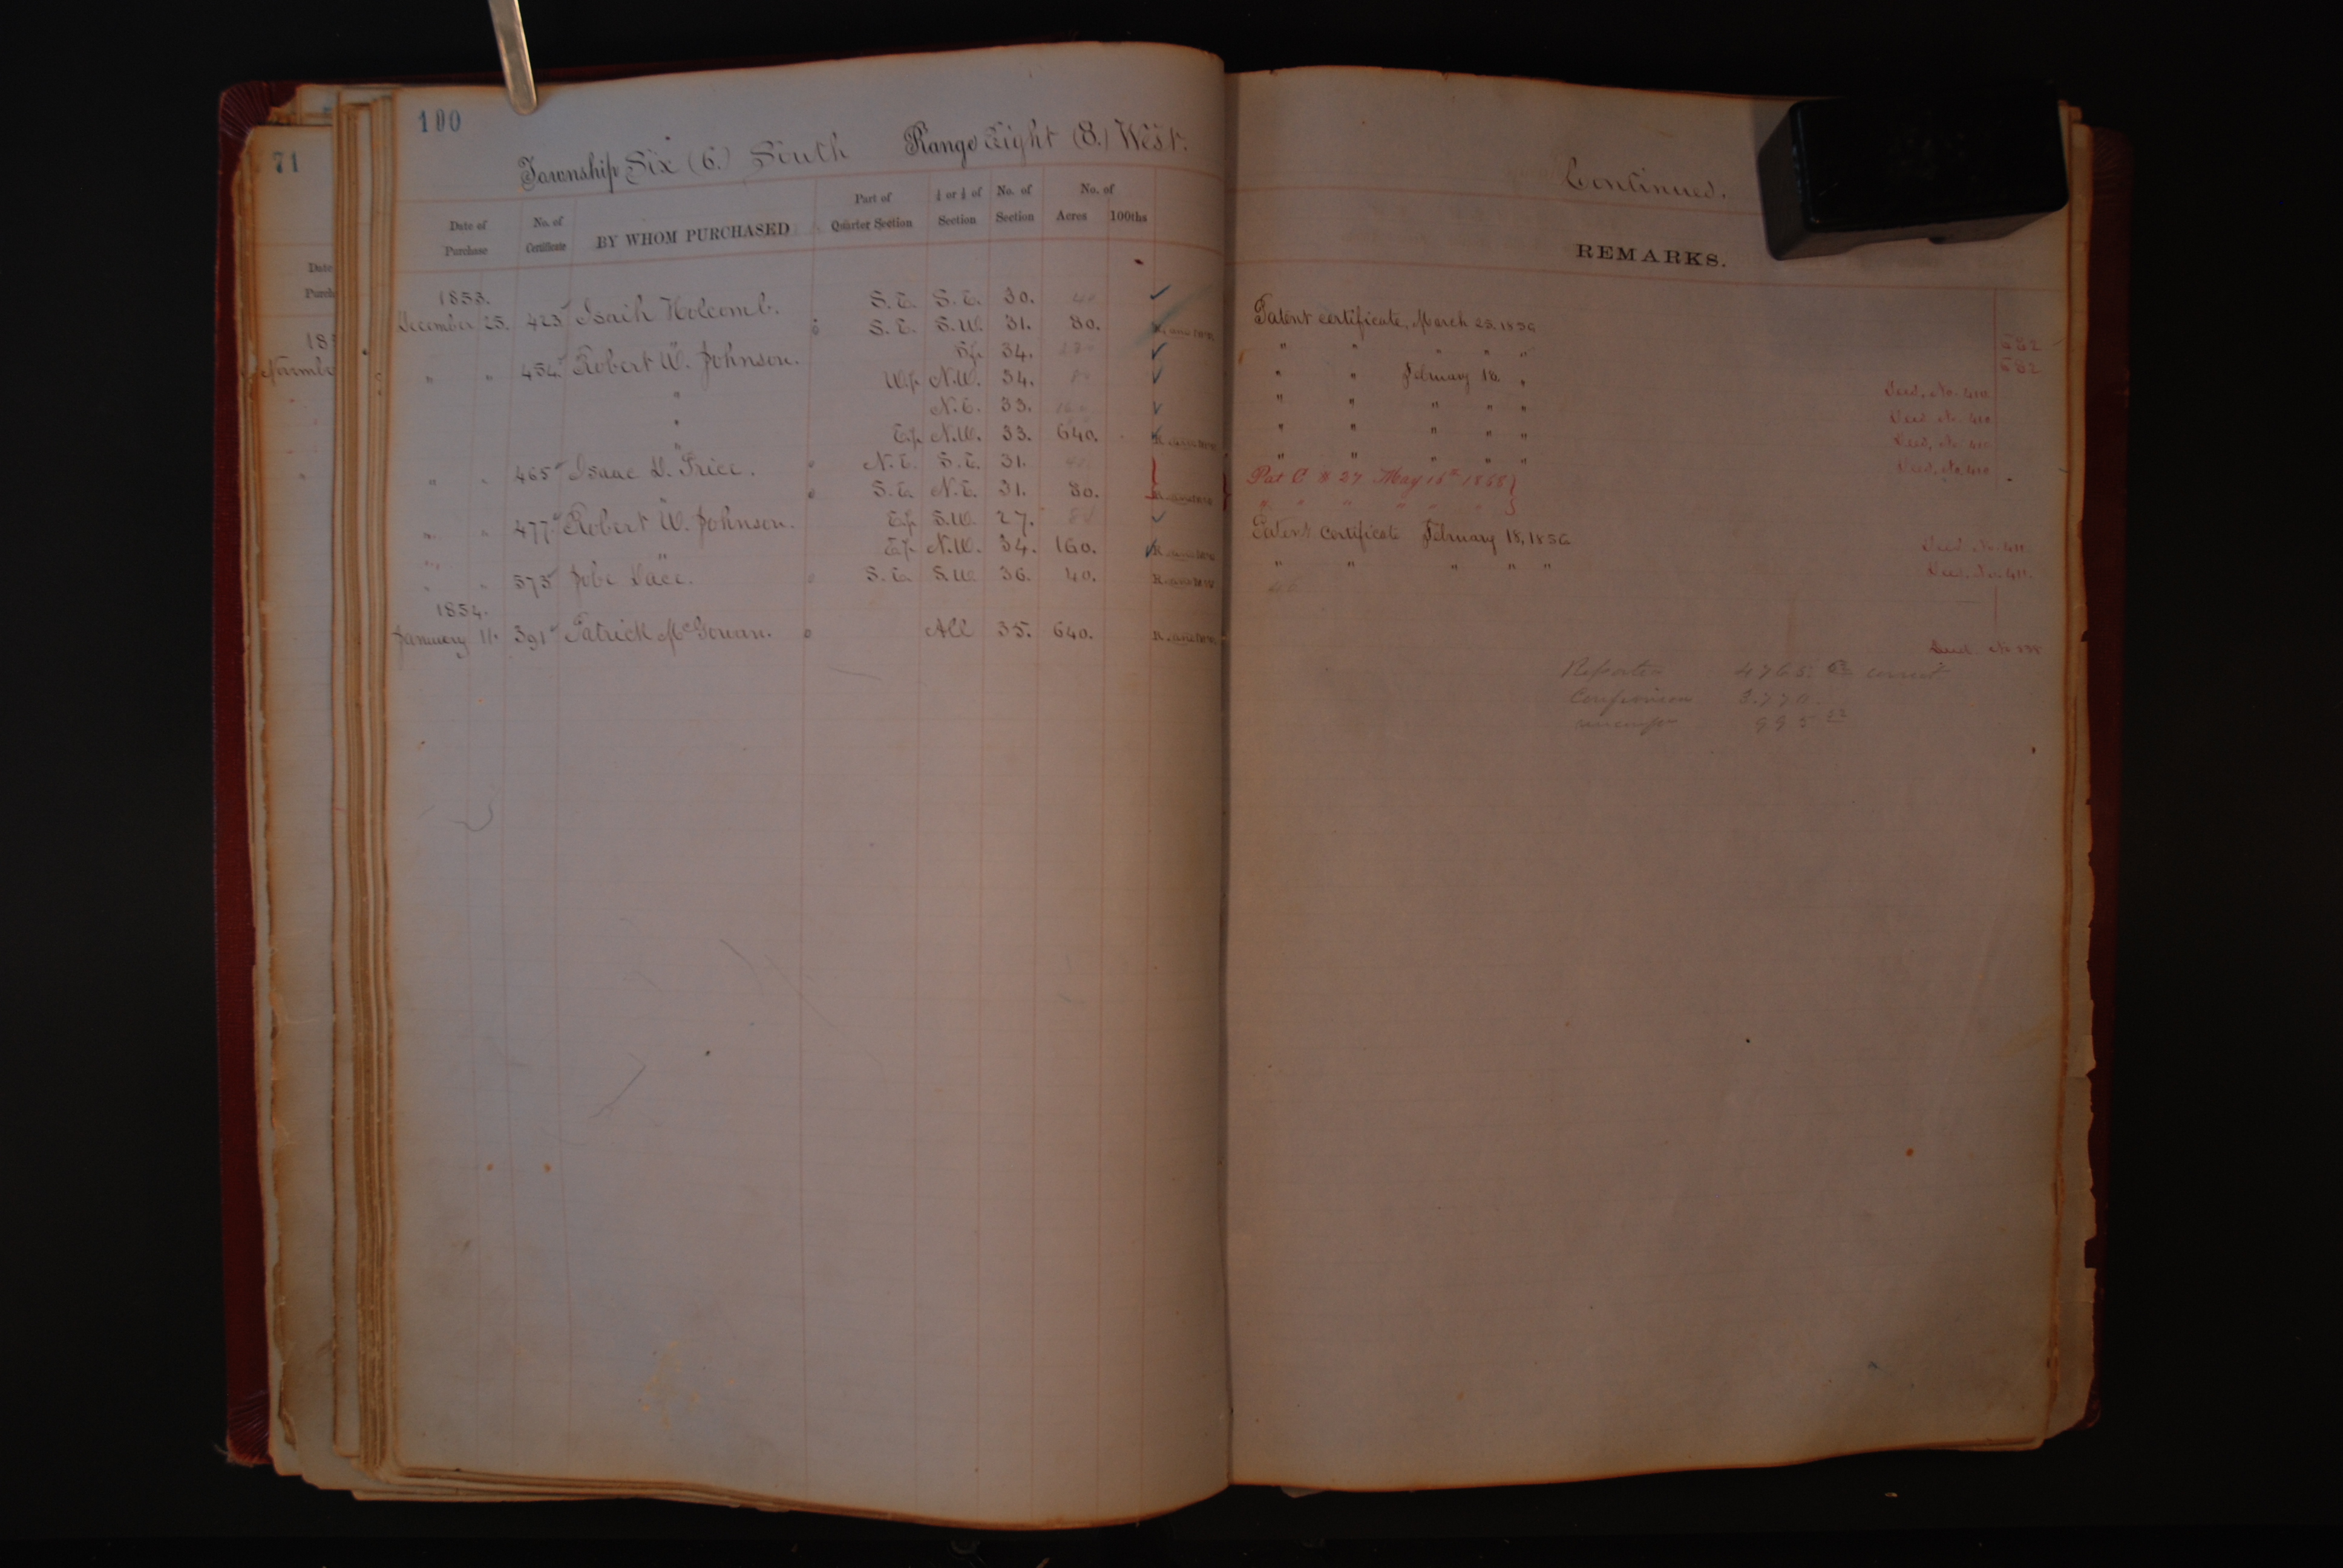 100
71
Township Six (6.) South Range Eight (8.) West.
Continued.
Date of Purchase No. of Certificate BY WHOM PURCHASED Part of Quarter Section ¼ or ½ of Section No. of Section No. of Acres 100ths
REMARKS.
1853.
December 25. 423 Isaih Holcomb. S.E. S.E. 30. 40 Patent certificate, March 25, 1856
S.E. S.W. 31. 80. " " " " " 682
" " 454 Robert W. Johnson. S½ 34. " " February 18. " 682
" W½ N.W. 34. 80 " " " " " Deed, No. 410
" N.E. 33. 160 " " " " " Deed No 410
" E½ N.W. 33. 640. " " " " " Deed, No 410
" " 465 Isaac D. Price. N.E. S.E. 31. 40 Pat C # 27 May 15th 1858 Deed, No 410
S.E. N.E. 31. 80. " " " " " "
" " 477 Robert W. Johnson. E½ S.W. 27. 80 Patent Certificate February 18, 1856
" E½ N.W. 34. 160. " " " " " Deed. No. 411.
" " 573 Jobe Dace. S.E. S.W. 36. 40. 40 Deed. No. 411.
1854.
January 11. 391 Patrick McGowan. All 35. 640.
Deed No 338
Reported 4765. 62 correct
3.770
995 62
Date
Purch
185